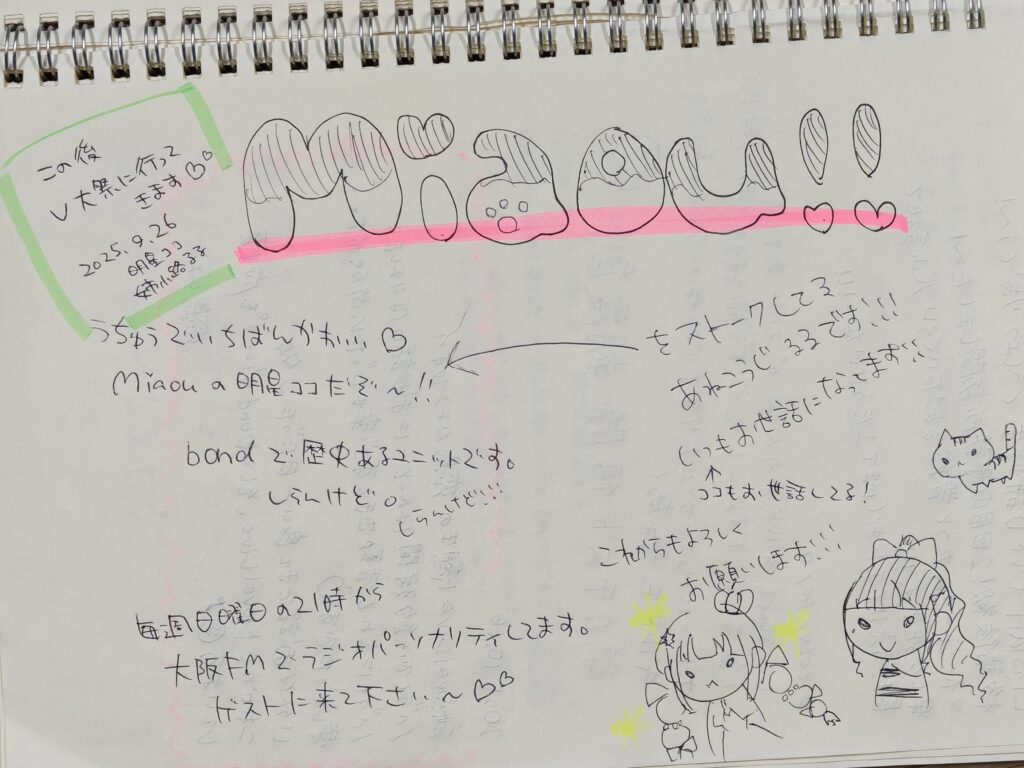 この後
V大祭に行って
きます♡♡
2025.9.26
明星ココ
姉小路るる
Miaou!!
うちゅうでいちばんかわいい♡
Miaouの明星ココだぞ〜!!
をストークしてる
あねこうじ るるです!!!
いつもお世話になってます!!
↑
ココもお世話してる!
bandで歴史あるユニットです。
しらんけど。
しらんけど!!!
これからもよろしく
お願いします!!!
毎週日曜日の21時から
大阪FMでラジオパーソナリティしてます。
ゲストに来て下さい〜♡♡